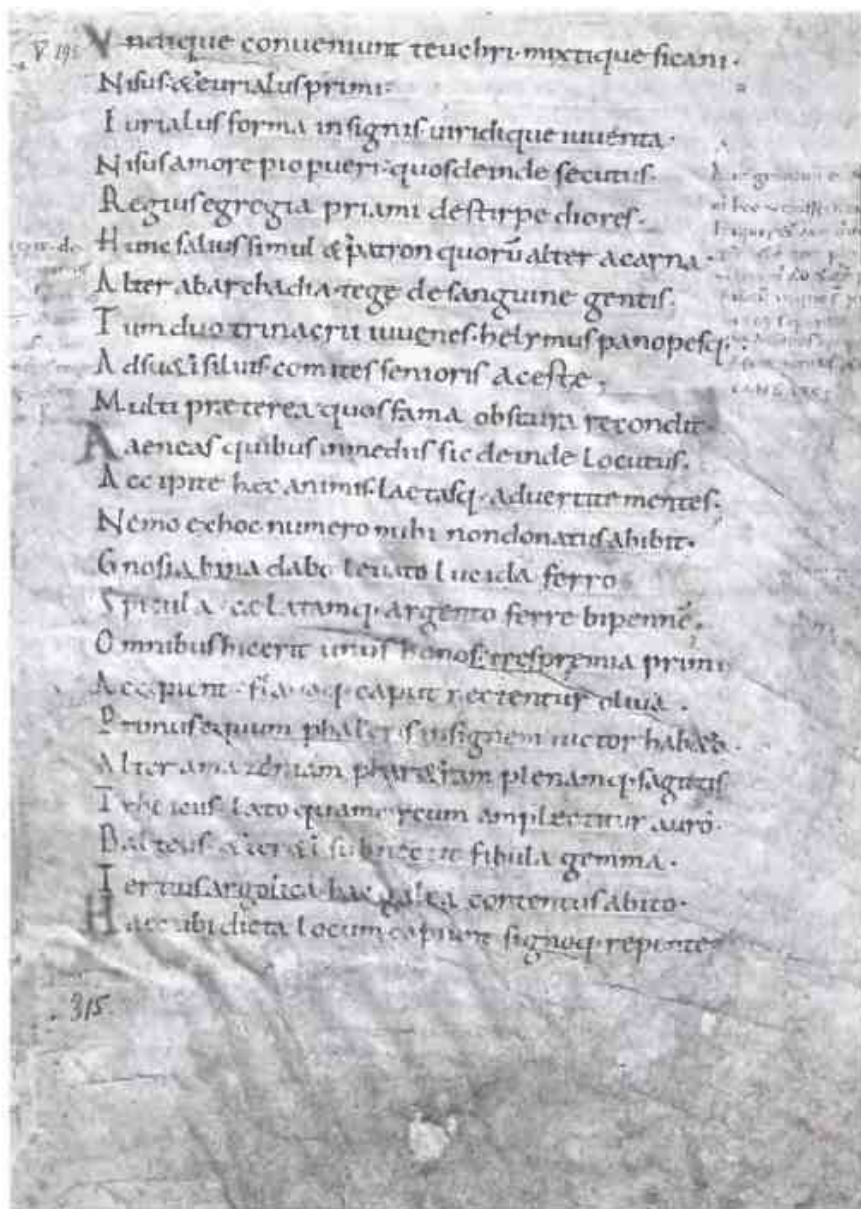 V 293
Undique conveniunt teuchri· mixtique sicani·
Nisus· & eurialus primi·
Eurialus forma insignis uiridique iuuenta·
Nisus amore pio pueri· quos deinde secutus·
Regius egregia priami de stirpe diores·
Hunc salius simul & patron quorū alter acarna·
Alter ab archadia· tege de sanguine gentis·
Tum duo trinacrii iuuenes· helymus panopesq·
Adsu&i siluis· comites senioris acestæ;
Multi præterea quos fama obscura recondit·
Aaeneas quibus in mediis sic deinde locutus·
Accipite hec animis· laetasq· aduertite mentes·
Nemo ex hoc numero mihi non donatus abibit·
Gnosia bina dabo leuato lucida ferro
Spicula· celatamq· argento ferre bipennē·
Omnibus hic erit unus honos· tres premia primi
Accipient· flauaq· caput nectentur oliua·
Primus equum phaleris insignem uictor hab&o·
Alter amazoniam phar&ram plenamq· sagittis
Threiciis· lato quam circum amplectitur auro·
Balteus· & ter&i subnectit fibula gemma·
Tertius argolica hac galea contentus abito·
Haec ubi dicta locum capiunt signoq· repente
315